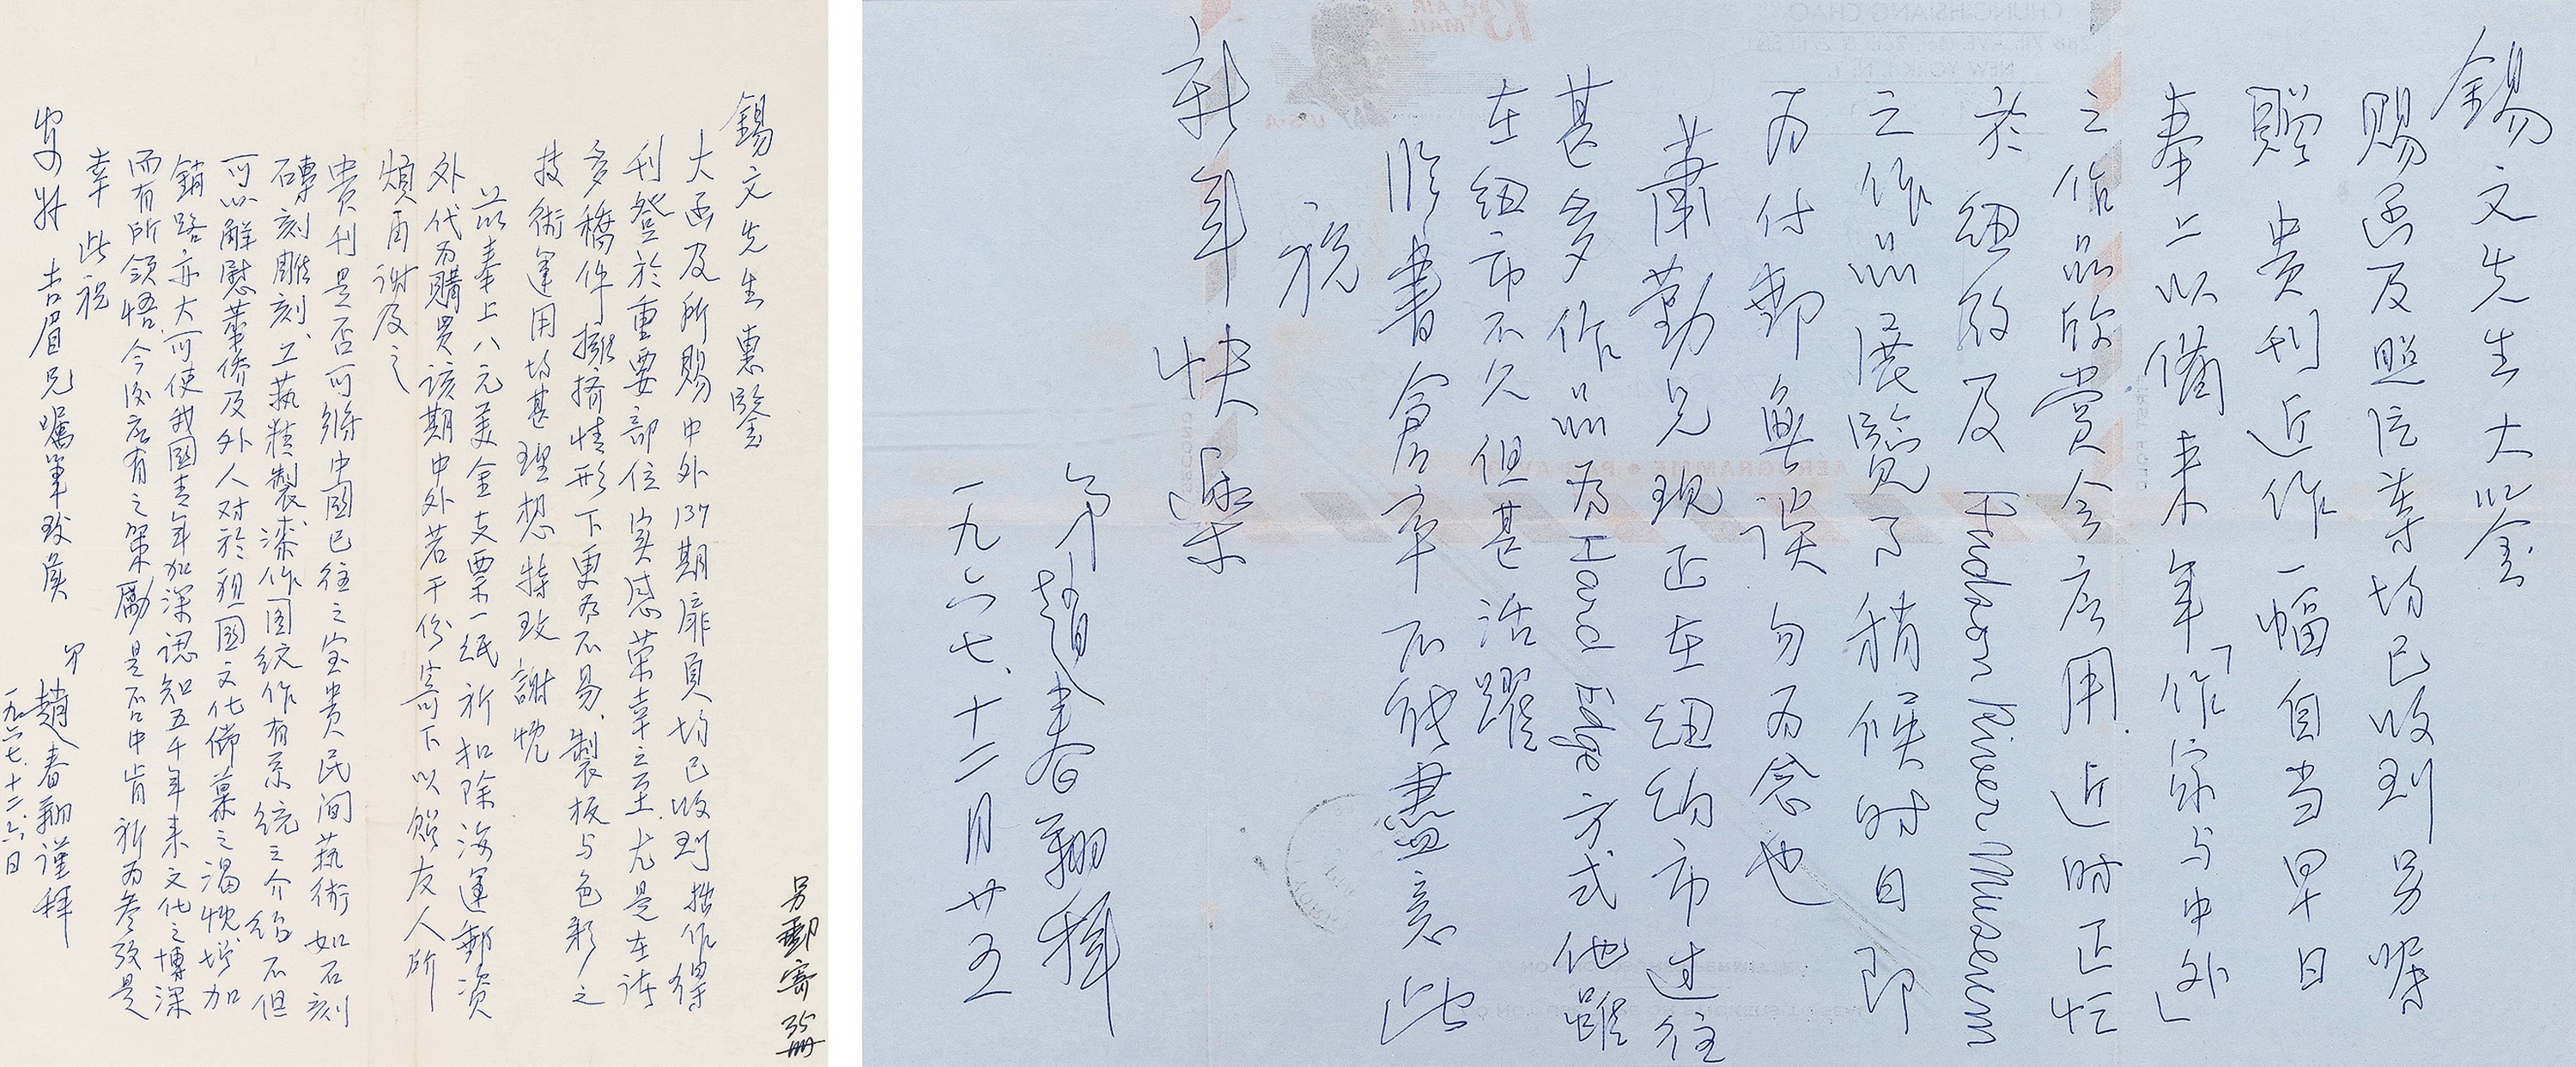 錫文先生惠鑒
大函及所賜中外137期扉頁均已收到拙作得
刊登於重要部位實感荣幸之至.尤是在許
多稿件擁擠情形下更為不易、製板与色彩之
技術運用均甚理想特致謝忱
茲奉上八元美金支票一紙祈扣除海運郵資
外代為購買該期中外若干份寄下以贈友人所
煩再謝及之
貴刊是否可將中國已往之宝贵民间艺術如石刻
磚刻雕刻、工藝精製漆作图纹作有系統之介紹不但
可以解慰華侨及外人对於祖國文化傾慕之渴忱增加
銷路亦大可使我國青年加深認知五千年来文化之博深
而有所領悟今後应有之策勵是否中肯祈为参考是
幸此祝
安好 吉眉兄嘱筆致候
弟趙春翔谨拜
一九六七.十二.六.日
另郵寄35冊
錫文先生大鉴
賜函及照片等均已收到另嘱
贈貴刊近作一幅自当早日
奉上以備来年「作家与中外」
之作品欣赏今应用.近時正忙
於纽约及Hudson River Museum
之作品展覽了稍候时日即
为付郵無误勿为念也
萧勤兄现正在纽约市过往
甚多作品为Hard Edge方式他雖
在纽市不久但甚活躍
临書倉卒不能盡意此
祝
新年快樂
弟趙春翔拜
一九六七.十二月廿五
CHUNG-HSIANG CHAO
NEW YORK, N.Y.
AEROGRAMME • PAR AVION